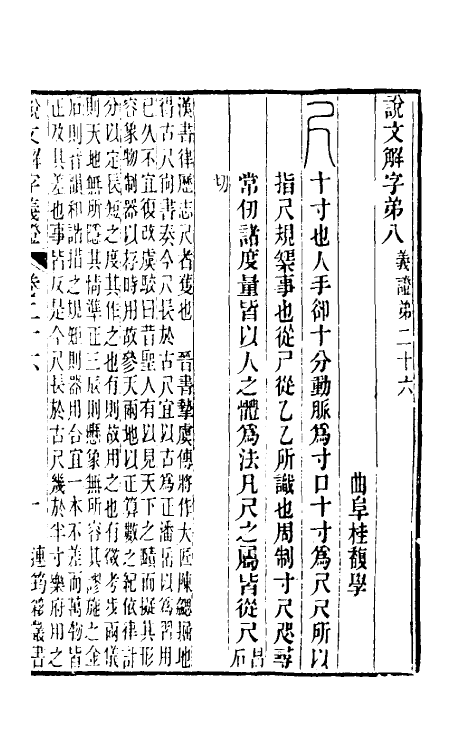 說文解字弟八
義證弟二十六
曲阜桂馥學
尺
十寸也人手卻十分動脈爲寸口十寸爲尺尺所以
指尺規榘事也從尸從乙乙所識也周制寸尺咫尋
常仞諸度量皆以人之體爲法凡尺之屬皆從尺昌石
切
漢書律歷志尺者蒦也 晉書摯虞傳將作大匠陳勰掘地
得古尺尚書奏今尺長於古尺宜以古爲正潘岳以爲習用
已久不宜復改虞駮曰昔聖人有以見天下之賾而擬其形
容象物制器以存時用故參天兩地以正算數之紀依律計
分以定長短之度其作之也有則故用之也有徵考步兩儀
則天地無所隱其情準正三辰則懸象無所容其謬施之金
石則音韻和諧措之規矩則器用合宜一本不差而萬物皆
正及其差也事皆反是今尺長於古尺幾於半寸樂府用之
說文解字義證 卷二十六 一 連筠簃叢書